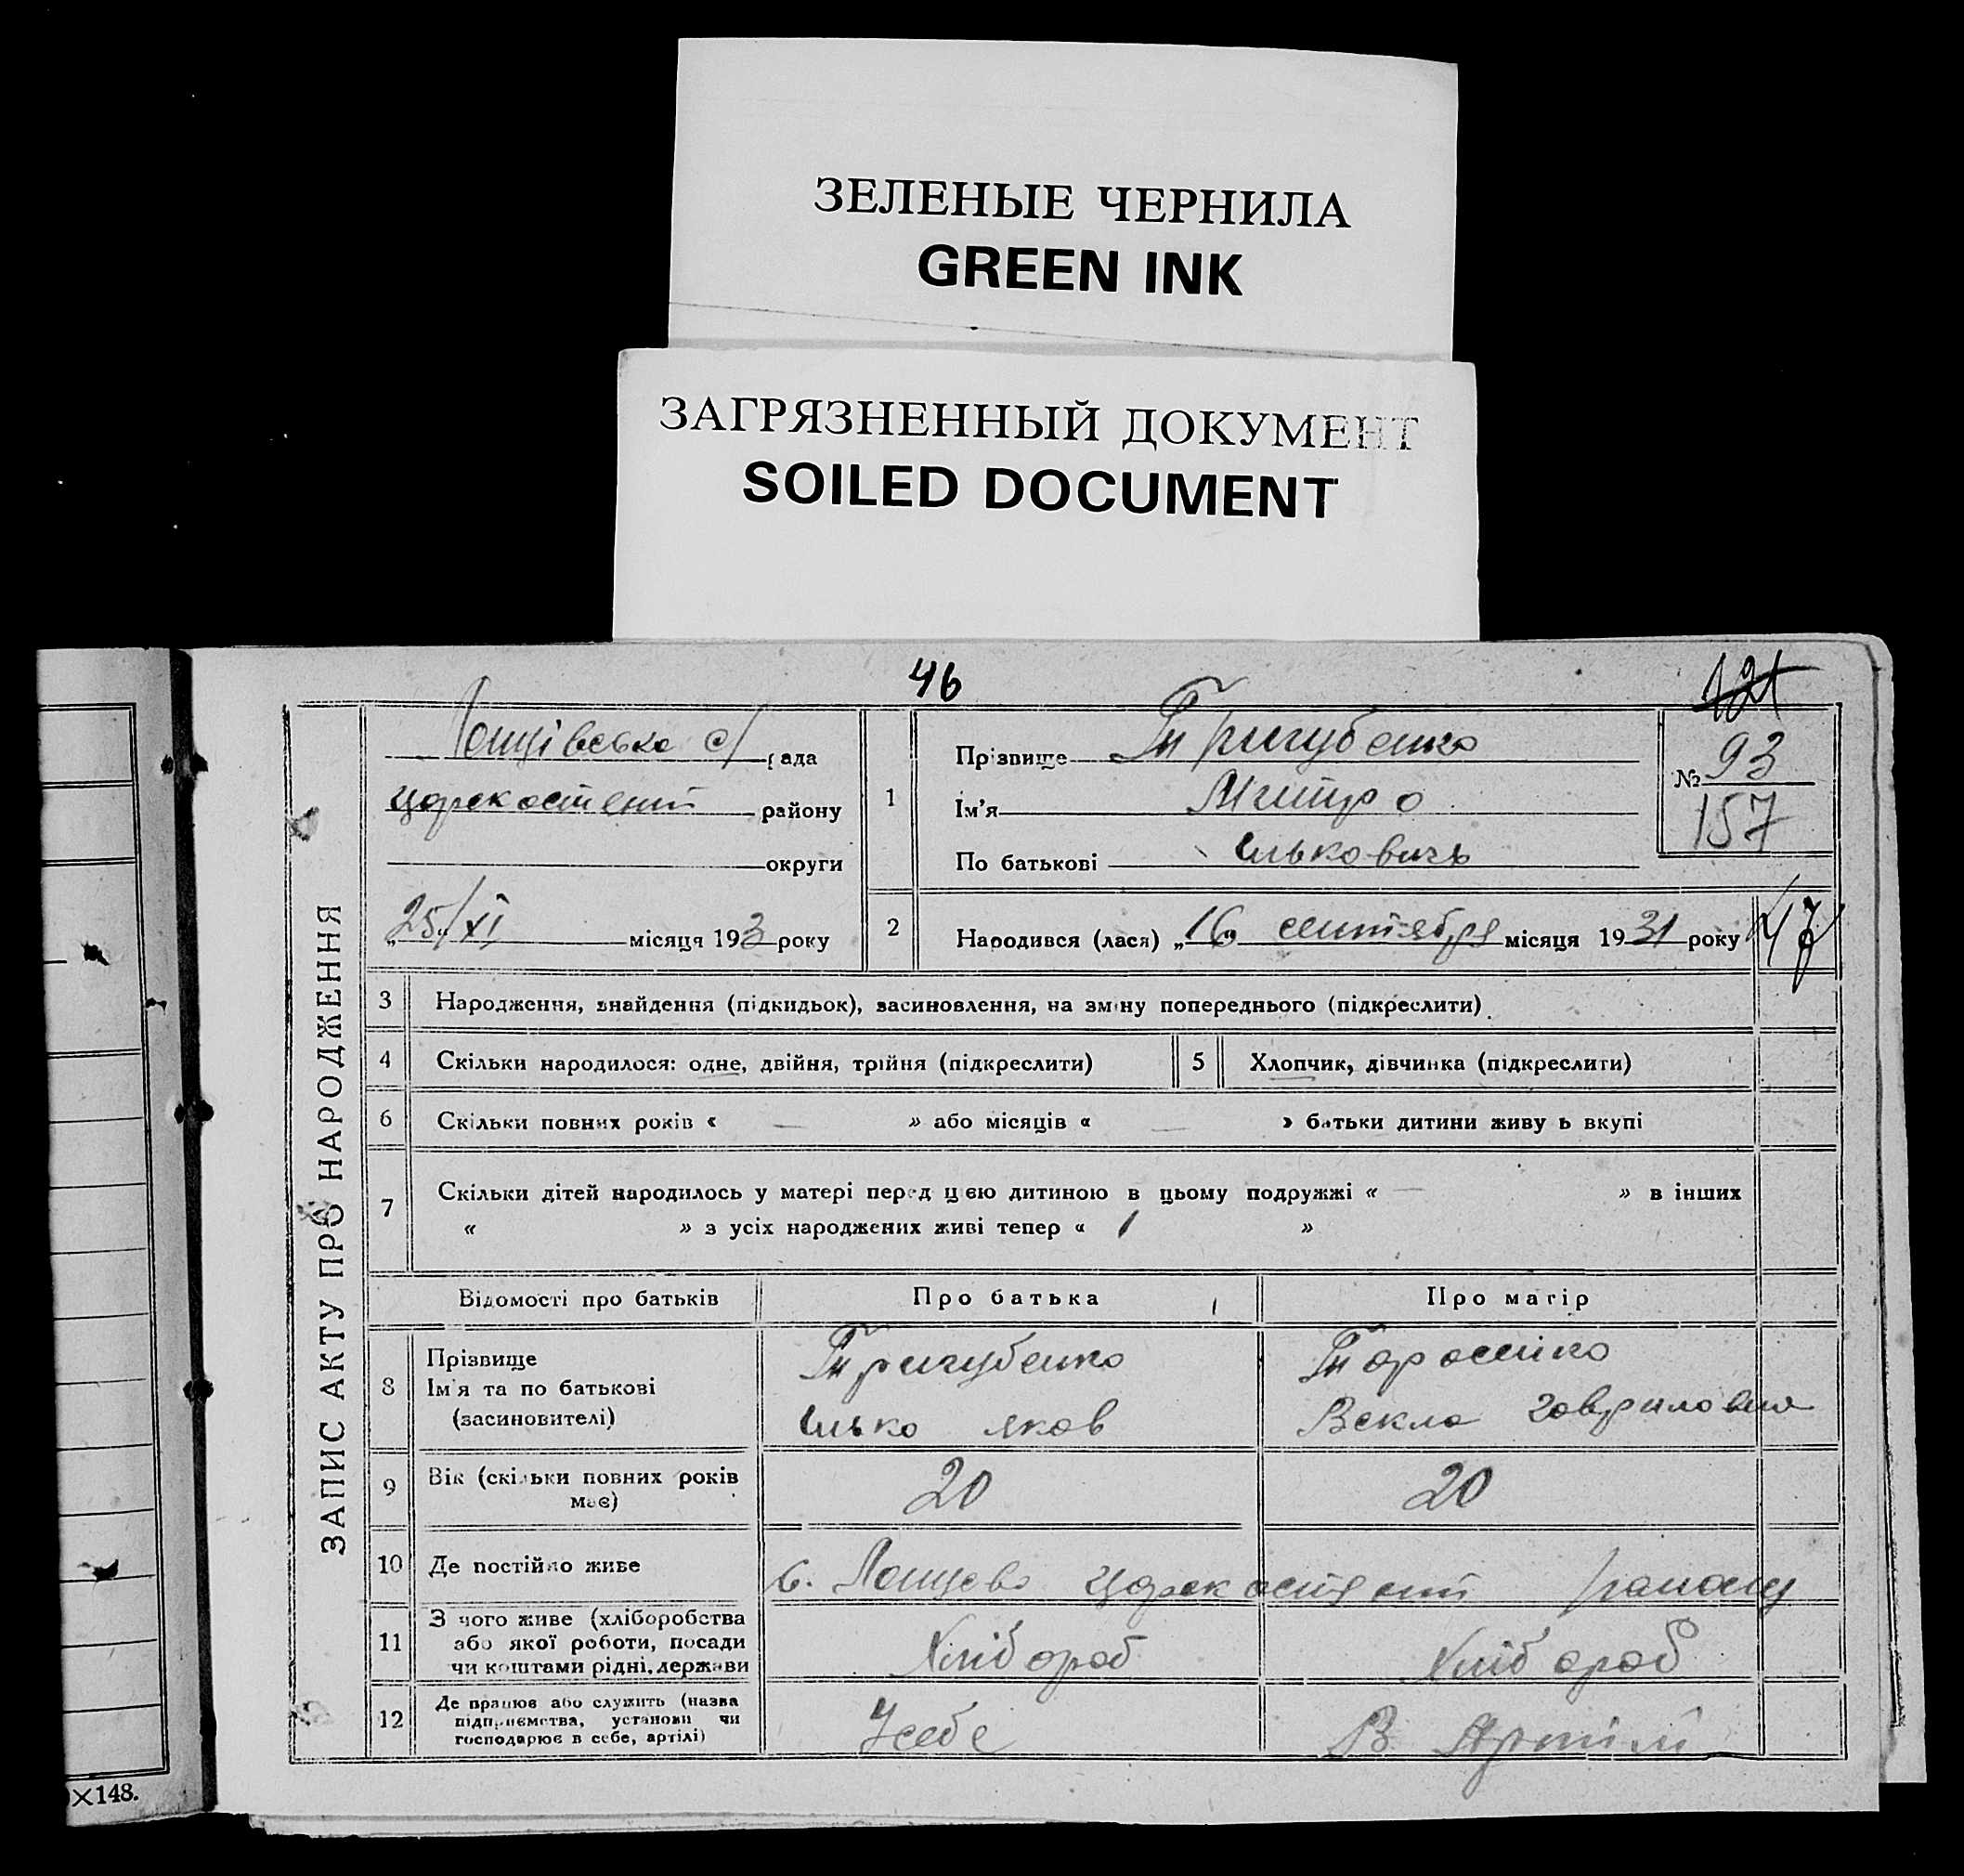 ЗЕЛЕНЫЕ ЧЕРНИЛА
GREEN INK
ЗАГРЯЗНЕННЫЙ ДОКУМЕНТ
SOILED DOCUMENT
46
121
ЗАПИС АКТУ ПРО НАРОДЖЕННЯ
с/рада
району
округи
25/XI місяця 1933 року
1
Прізвище Тригубенко
Ім'я Митро
По батькові Ильковичь
№ 93
157
2
Народився (лася) „16" сентября місяця 1931 року
47
3 Народження, знайдення (підкидьок), засиновлення, на зміну попереднього (підкреслити)
4 Скільки народилося: одне, двійня, трійня (підкреслити)
5 Хлопчик, дівчинка (підкреслити)
6 Скільки повних років « — » або місяців « — » батьки дитини живуть вкупі
7 Скільки дітей народилось у матері перед цією дитиною в цьому подружжі « — » в інших
« » з усіх народжених живі тепер « 1 »
Відомості про батьків Про батька Про матір
8 Прізвище
Ім'я та по батькові
(засиновителі)
Тригубенко
Илько Яков
Векла Гавриловна
9 Вік (скільки повних років
має)
20 20
10 Де постійно живе
с. району
11 З чого живе (хліборобства
або якої роботи, посади
чи коштами рідні, держави
Хлібороб Хлібороб
12 Де працює або служить (назва
підприємства, установи чи
господарює в себе, артілі)
У себе В Артілі
×148.